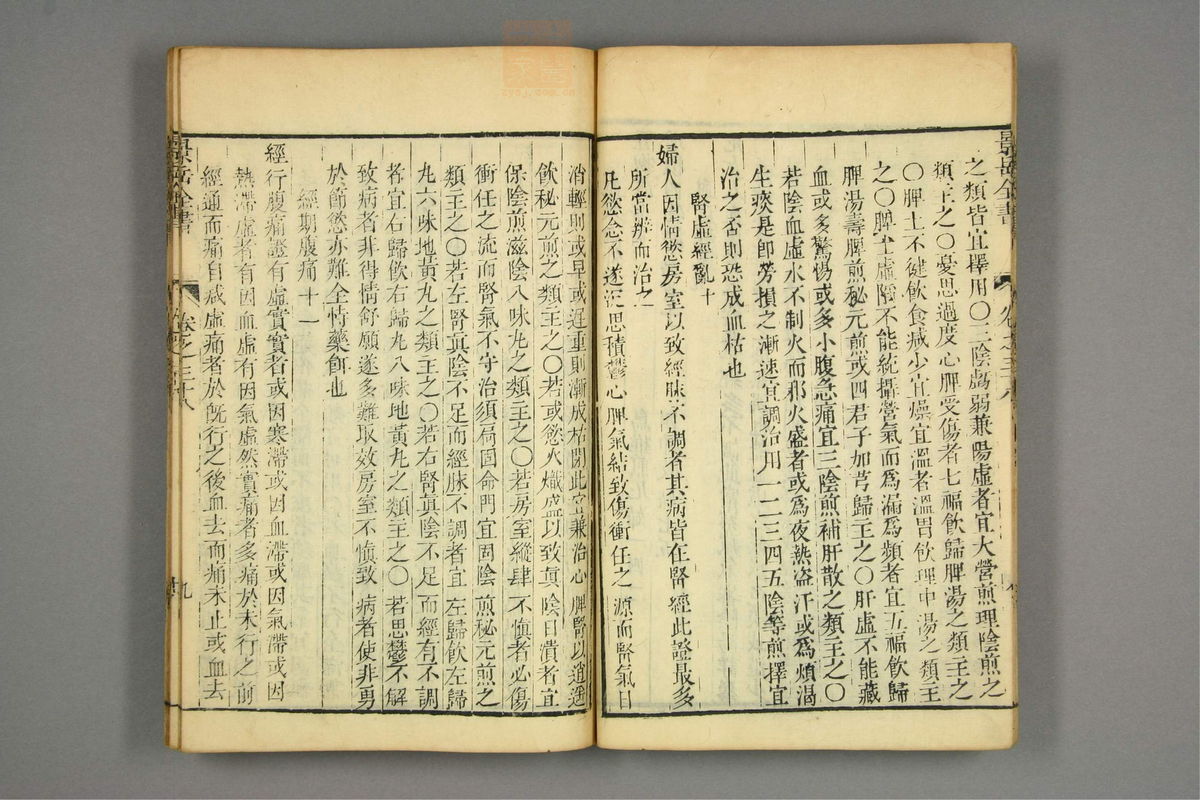 之類皆宜擇用〇三陰虧弱兼陽虛者宜大營煎理陰煎之
類主之〇憂思過度心脾受傷者七福飲歸脾湯之類主之
〇脾土不健飲食減少宜燥宜溫者溫胃飲理中湯之類主
之〇脾土虛陷不能統攝營氣而爲漏爲頻者宜五福飲歸
脾湯壽脾煎秘元煎或四君子加芎歸主之〇肝虛不能藏
血或多驚惕或多小腹急痛宜三陰煎補肝散之類主之〇
若陰血虛水不制火而邪火盛者或爲夜熱盜汗或爲煩渴
生痰是卽勞損之漸速宜調治用一二三四五陰等煎擇宜
治之否則恐成血枯也
腎虛經亂十
婦人因情慾房室以致經脉不調者其病皆在腎經此證最多
所當辨而治之
凡慾念不遂沉思積鬱心脾氣結致傷衝任之源而腎氣日
消輕則或早或遲重則漸成枯閉此宜兼治心脾腎以逍遙
飲秘元煎之類主之〇若或慾火熾盛以致眞陰日潰者宜
保陰煎滋陰八味丸之類主之〇若房室縱肆不慎者必傷
衝任之流而腎氣不守治須扃固命門宜固陰煎秘元煎之
類主之〇若左腎眞陰不足而經脉不調者宜左歸飲左歸
丸六味地黃丸之類主之〇若右腎眞陰不足而經有不調
者宜右歸飲右歸丸八味地黃丸之類主之〇若思鬱不解
致病者非得情舒願遂多難取效房室不慎致病者使非勇
於節慾亦難全恃藥餌也
經期腹痛十一
經行腹痛證有虛實實者或因寒滯或因血滯或因氣滯或因
熱滯虛者有因血虛有因氣虛然實痛者多痛於未行之前
經通而痛自減虛痛者於旣行之後血去而痛未止或血去
景岳全書
卷之三十八
九